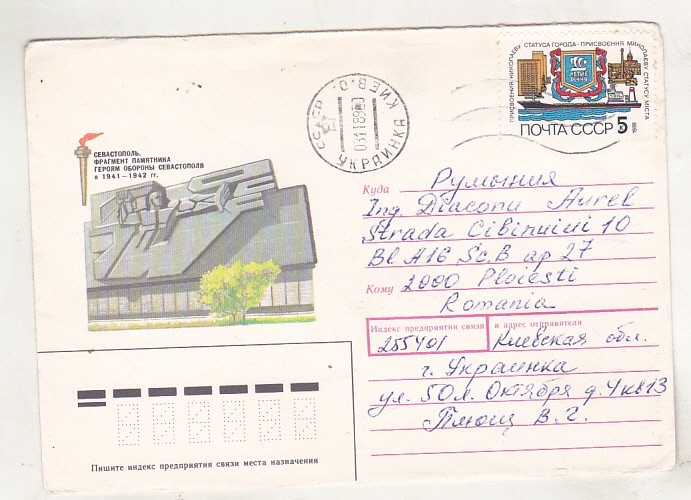 ПРИСВОЕНИЯ НИКОЛАЕВУ СТАТУСА ГОРОДА • ПРИСВОЄННЯ МИКОЛАЄВУ СТАТУСУ МІСТА
ПОЧТА СССР 5
1989
СССР
КИЕВ.О.
031189
УКРАИНКА
СЕВАСТОПОЛЬ.
ФРАГМЕНТ ПАМЯТНИКА
ГЕРОЯМ ОБОРОНЫ СЕВАСТОПОЛЯ
в 1941—1942 гг.
Куда Румыния
Ing. Diaconu Aurel
Strada Cibinului 10
Bl A16 Sc.B ap 27
Кому 2000 Ploiesti
Romania
Индекс предприятия связи и адрес отправителя
255401 Киевская обл.
г. Украинка
ул. 50л. Октября д.4кв13
Плющ В. Г.
Пишите индекс предприятия связи места назначения